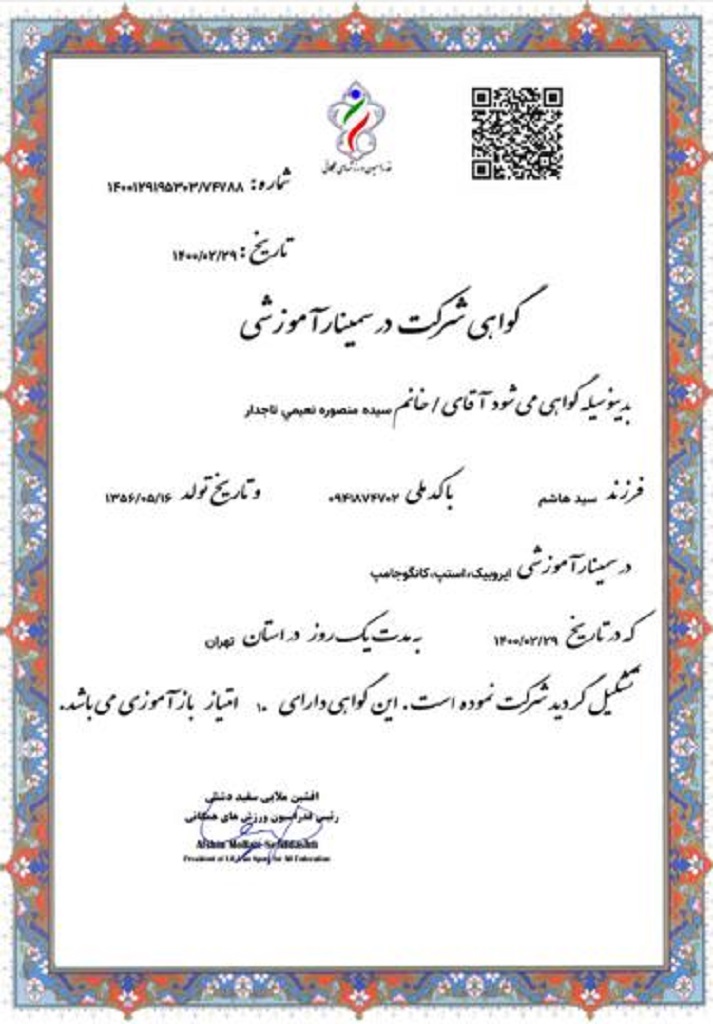 فدراسیون ورزشهای همگانی
شماره: ۱۴۰۰۱۲۹۱۹۵۳۰۳/۷۴۷۸۸
تاریخ: ۱۴۰۰/۰۲/۲۹
گواهی شرکت در سمینار آموزشی
بدینوسیله گواهی می شود آقای / خانم سیده منصوره نعیمي تاجدار
فرزند سید هاشم با کد ملی ۰۹۴۱۸۷۴۷۰۲ و تاریخ تولد ۱۳۵۶/۰۵/۱۶
در سمینار آموزشی ایروبیک،استپ،کانگوجامپ
که در تاریخ ۱۴۰۰/۰۲/۲۹ به مدت یک روز در استان تهران
تشکیل گردید شرکت نموده است. این گواهی دارای ۱۰ امتیاز بازآموزی می باشد.
افشین ملایی سفید دشتی
رئیس فدراسیون ورزش های همگانی
Afshin Mollaie
President of I.R.Iran Sport for All Federation